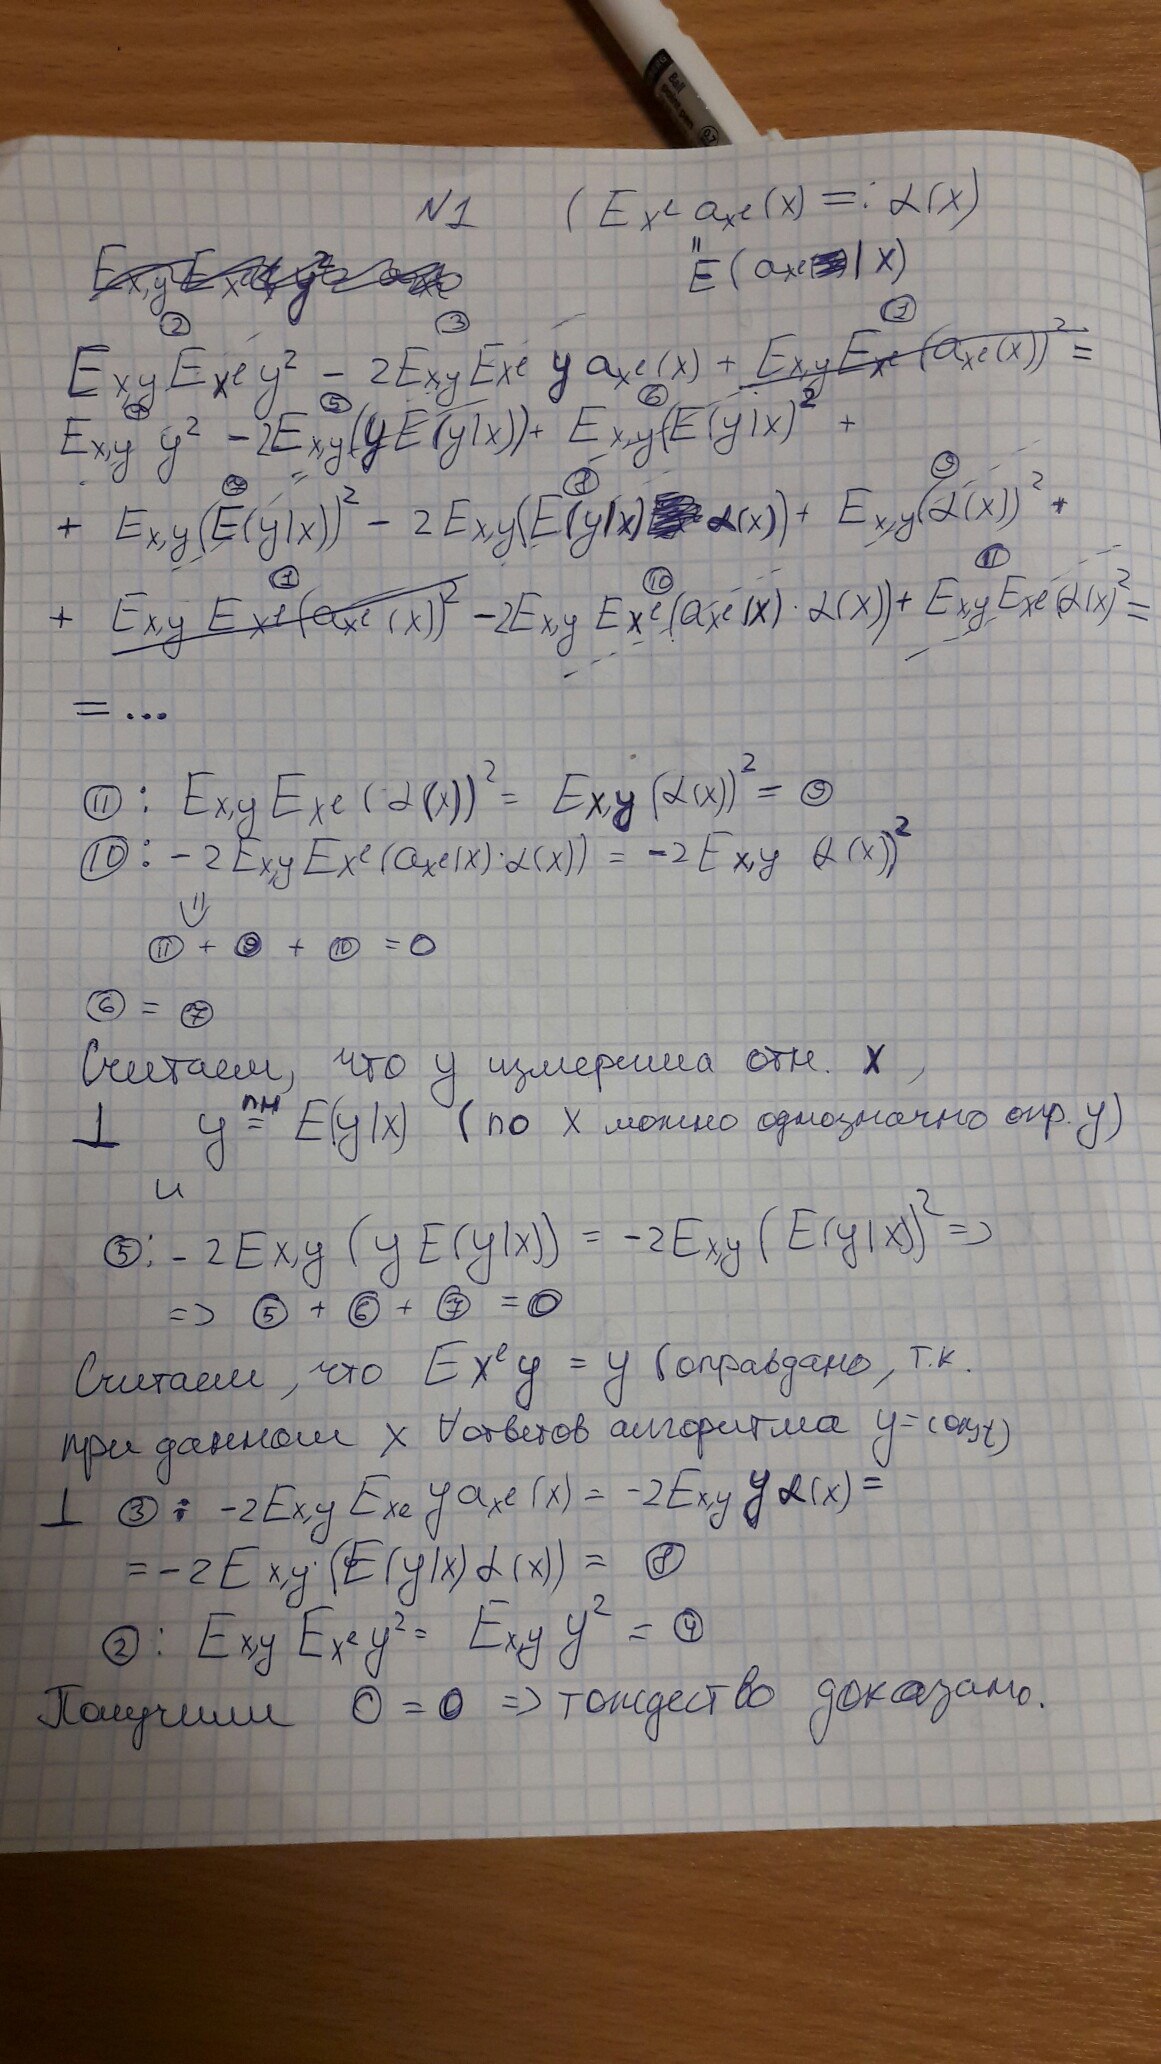 Ball
0.7
N1 ( E_{x^l} a_{x^l}(x) =: α(x)
" E(a_{x^l} | x)
② ③ ①
E_{x,y} E_{x^l} y² − 2E_{x,y} E_{x^l} y a_{x^l}(x) + E_{x,y} E_{x^l} (a_{x^l}(x))² =
④ ⑤ ⑥
E_{x,y} y² − 2E_{x,y}(y E(y|x)) + E_{x,y}(E(y|x)² +
⑦ ⑧ ⑨
+ E_{x,y}(E(y|x))² − 2E_{x,y}(E(y|x) α(x)) + E_{x,y}(α(x))² +
① ⑩ ⑪
+ E_{x,y} E_{x^l}(a_{x^l}(x))² − 2E_{x,y} E_{x^l}(a_{x^l}(x) · α(x)) + E_{x,y} E_{x^l}(α(x)² =
= ...
⑪ : E_{x,y} E_{x^l} (α(x))² = E_{x,y} (α(x))² = ⑨
⑩ : −2E_{x,y} E_{x^l}(a_{x^l}(x) · α(x)) = −2E_{x,y} (α(x))²
⇓
⑪ + ⑨ + ⑩ = 0
⑥ = ⑦
Считаем, что y измерима отн. x,
⊥ y =^{пн} E(y|x) (по x можно однозначно опр. y)
и
⑤: −2E_{x,y} (y E(y|x)) = −2E_{x,y} (E(y|x))² =>
=> ⑤ + ⑥ + ⑦ = 0
Считаем, что E_{x^l} y = y (оправдано, т.к.
при данном x ∀ ответов алгоритма y = const)
⊥ ③ : −2E_{x,y} E_{x^l} y a_{x^l}(x) = −2E_{x,y} y α(x) =
= −2E_{x,y} (E(y|x) α(x)) = ⑧
② : E_{x,y} E_{x^l} y² = E_{x,y} y² = ④
Получили 0 = 0 => тождество доказано.